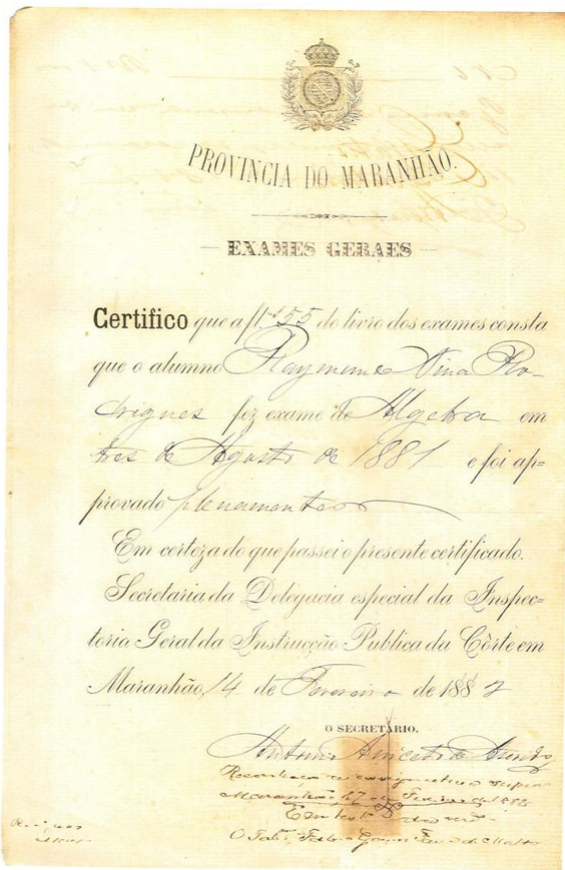 PROVINCIA DO MARANHÃO.
EXAMES GERAES
Certifico que a fl. 155 do livro dos exames consta
que o alumno Raymundo Nina Ro-
drigues fez exame de Algebra em
tres de Agosto de 1881 e foi ap=
provado plenamente
Em certeza do que passei o presente certificado.
Secretaria da Delegacia especial da Inspec=
toria Geral da Instrucção Publica da Côrte em
Maranhão, 14 de Fevereiro de 1882
O SECRETARIO,
Antonio
Reconheço supra
Maranhão, 17 de
Em test.
O Tab.